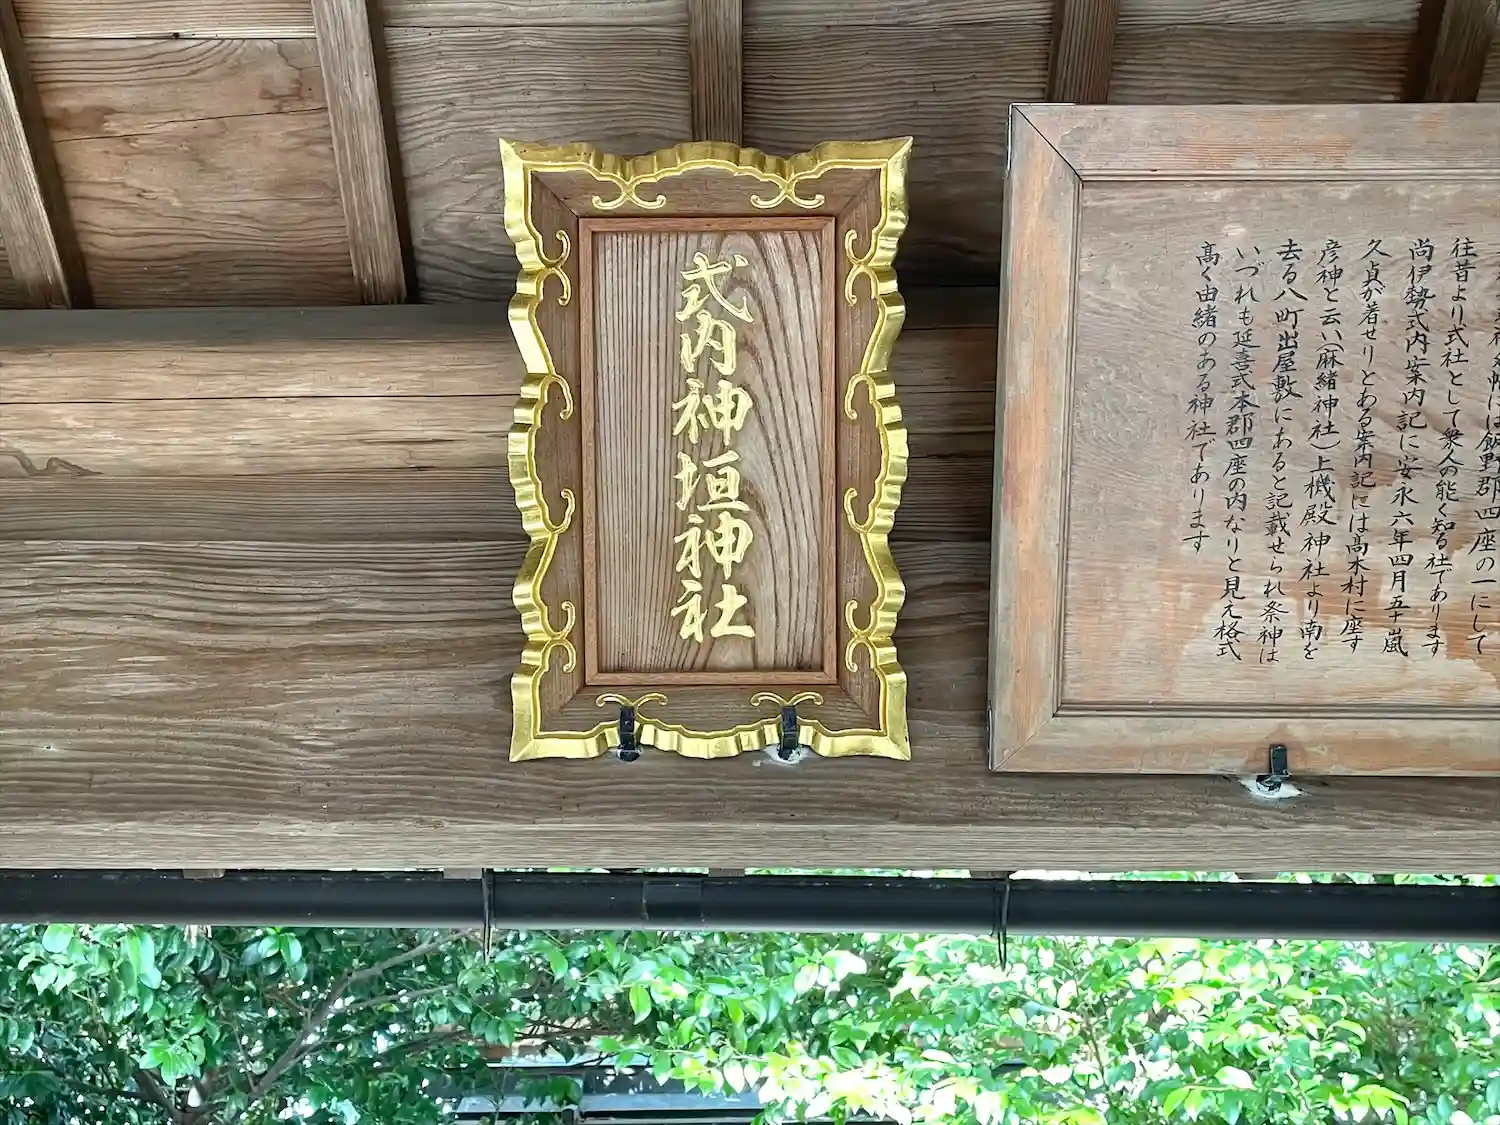 式内神垣神社
神名帳には飯野郡四座の一にして
往昔より式社として衆人の能く知る社であります
尚伊勢式内案内記に安永六年四月五十嵐
久貞が着せりとある案内記には髙木村に座す
彦神と云い(麻緒神社)上機殿神社より南を
去る八町出屋敷にあると記載せられ祭神は
いづれも延喜式本郡四座の内なりと見え格式
髙く由緒のある神社であります